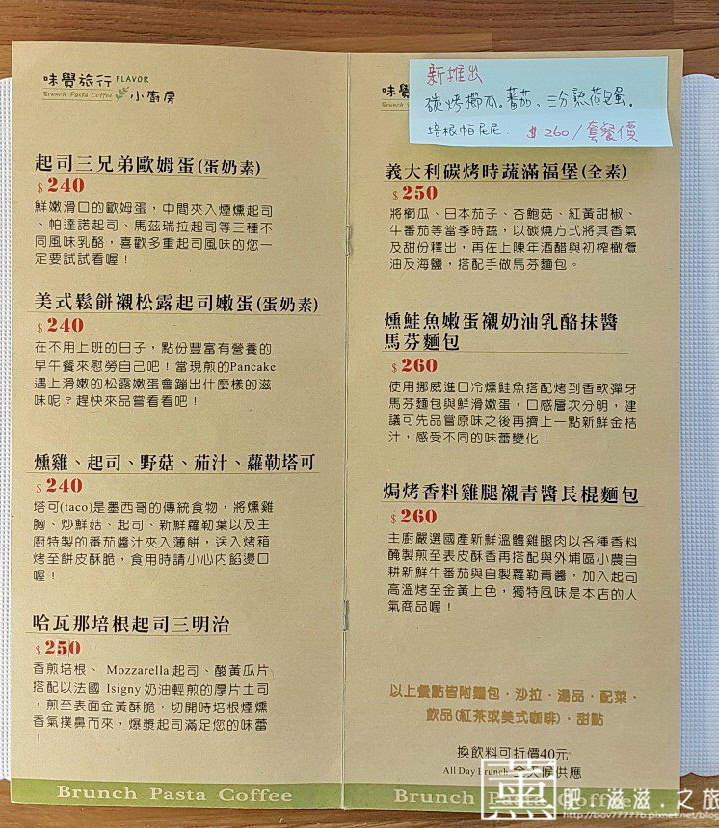 味覺旅行 FLAVOR
Brunch Pasta Coffee 小廚房
起司三兄弟歐姆蛋(蛋奶素)
$240
鮮嫩滑口的歐姆蛋，中間夾入煙燻起司
、帕達諾起司、馬茲瑞拉起司等三種不
同風味乳酪，喜歡多重起司風味的您一
定要試試看喔！
美式鬆餅襯松露起司嫩蛋(蛋奶素)
$240
在不用上班的日子，點份豐富有營養的
早午餐來慰勞自己吧！當現煎的Pancake
遇上滑嫩的松露嫩蛋會蹦出什麼樣的滋
味呢？趕快來品嘗看看吧！
燻雞、起司、野菇、茄汁、蘿勒塔可
$240
塔可(taco)是墨西哥的傳統食物，將燻雞
胸、炒鮮菇、起司、新鮮羅勒葉以及主
廚特製的番茄醬汁夾入薄餅，送入烤箱
烤至餅皮酥脆，食用時請小心內餡燙口
喔！
哈瓦那培根起司三明治
$250
香煎培根、 Mozzarella起司、酸黃瓜片
搭配以法國 Isigny 奶油輕煎的厚片土司
，煎至表面金黃酥脆，切開時培根煙燻
香氣撲鼻而來，爆漿起司滿足您的味蕾
！
Brunch Pasta Coffee
味覺
新推出
碳烤櫛瓜。蕃茄、三分熟荷包蛋。
培根帕尼尼. $260/套餐價
義大利碳烤時蔬滿福堡(全素)
$250
將櫛瓜、日本茄子、杏鮑菇、紅黃甜椒、
牛番茄等當季時蔬，以碳燒方式將其香氣
及甜份釋出，再在上陳年酒醋與初榨橄欖
油及海鹽，搭配手做馬芬麵包。
燻鮭魚嫩蛋襯奶油乳酪抹醬
馬芬麵包
$260
使用挪威進口冷燻鮭魚搭配烤到香軟彈牙
馬芬麵包與鮮滑嫩蛋，口感層次分明，建
議可先品嘗原味之後再擠上一點新鮮金桔
汁，感受不同的味蕾變化
焗烤香料雞腿襯青醬長棍麵包
$260
主廚嚴選國產新鮮溫體雞腿肉以各種香料
醃製煎至表皮酥香再搭配與外埔區小農自
耕新鮮牛番茄與自製蘿勒青醬，加入起司
高溫烤至金黃上色，獨特風味是本店的人
氣商品喔！
以上餐點皆附麵包．沙拉．湯品．配菜．
飲品(紅茶或美式咖啡)．甜點
換飲料可折價40元
All Day Brunch 全天候供應
Brunch Pasta Coffee
薰 肥．滋滋．之旅